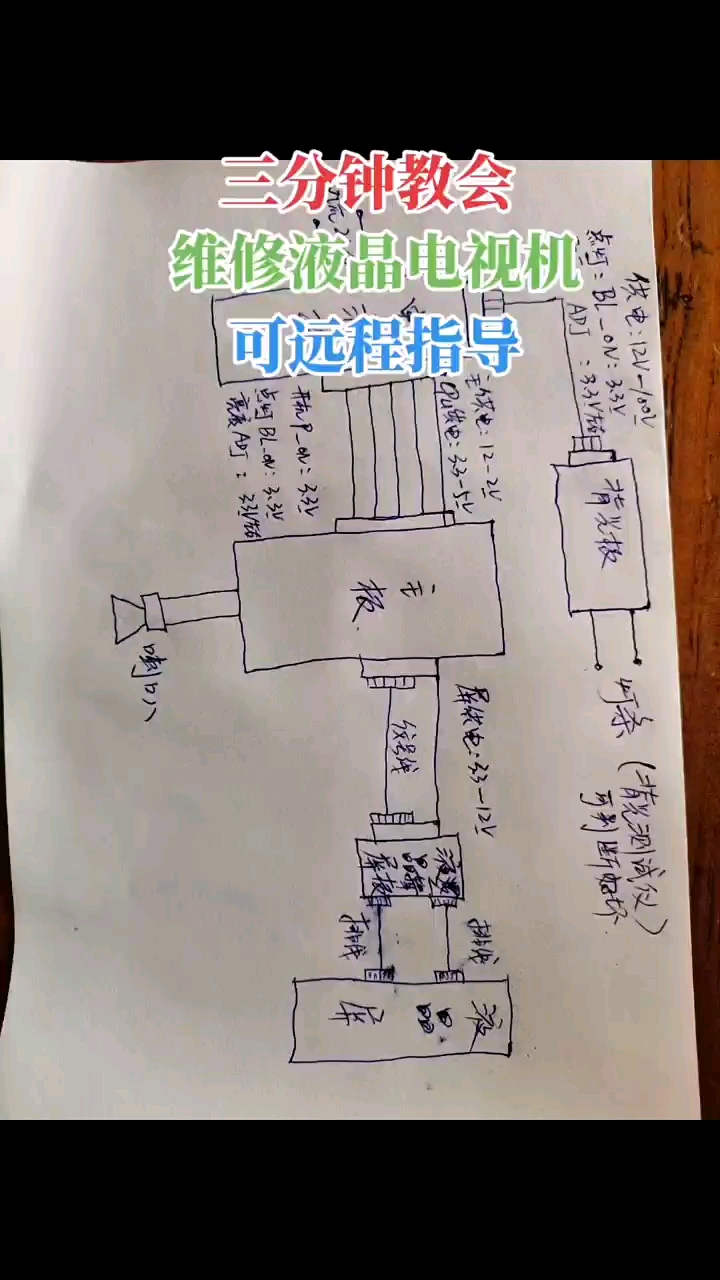 三分钟教会
维修液晶电视机
可远程指导
供电:12V-100V
点灯:BL_ON:3.3V
ADJ:3.3V左右
背光板
灯条(背光测试仪)
可判断好坏
主供电:12-24V
CPU供电:3.3-5V
开机P_ON:3.3V
点灯BL_ON:3.3V
亮度ADJ:3.3V左右
主板
喇叭
屏供电:3.3-12V
液晶
屏
排线
排线